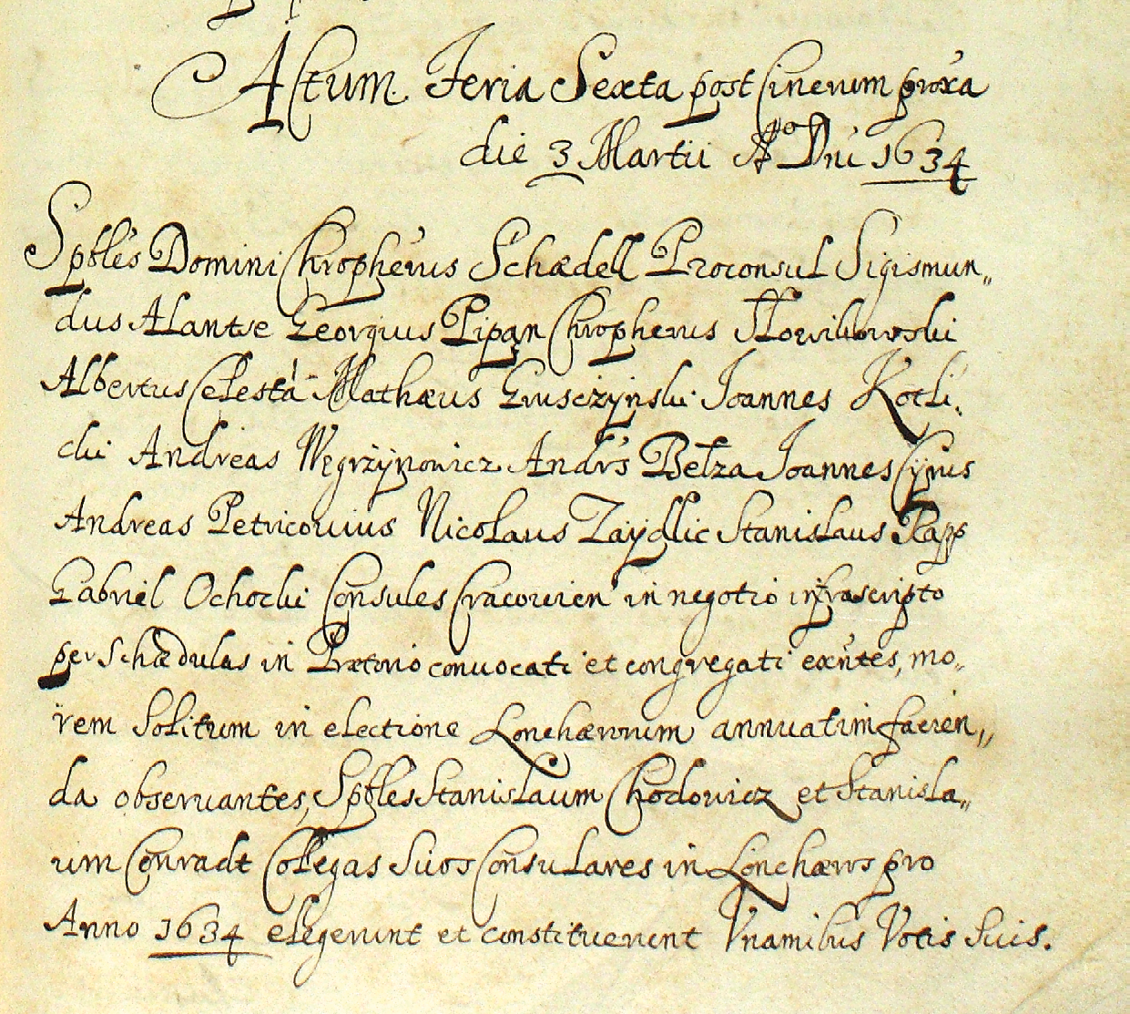 Actum Feria Sexta post Cinerum proxa
die 3 Martii Ao Dni 1634
Sptles Domini Chropherus Schædell Proconsul Sigismun„
dus Alantse Georgius Pipan Chropherus
Albertus Celesta Mathæus Gruszczynski Ioannes Kochi„
cki Andreas Węgrzynowicz Andrs Bełza Ioannes Cyrus
Andreas Petricovius Nicolaus Zaydlic Stanislaus Rapp
Gabriel Ochocki Consules Cracovien in negotio infrascripto
per Schædulas in Prætorio convocati et congregati exntes, mo„
rem Solitum in electione Lonherorum annuatim facien„
da observantes, Sptles Stanislaum Chodowicz et Stanisla„
um Conradt Collegas Suos Consulares in Lonheros pro
Anno 1634 elegerunt et constituerunt Vnamibus Votis Suis.